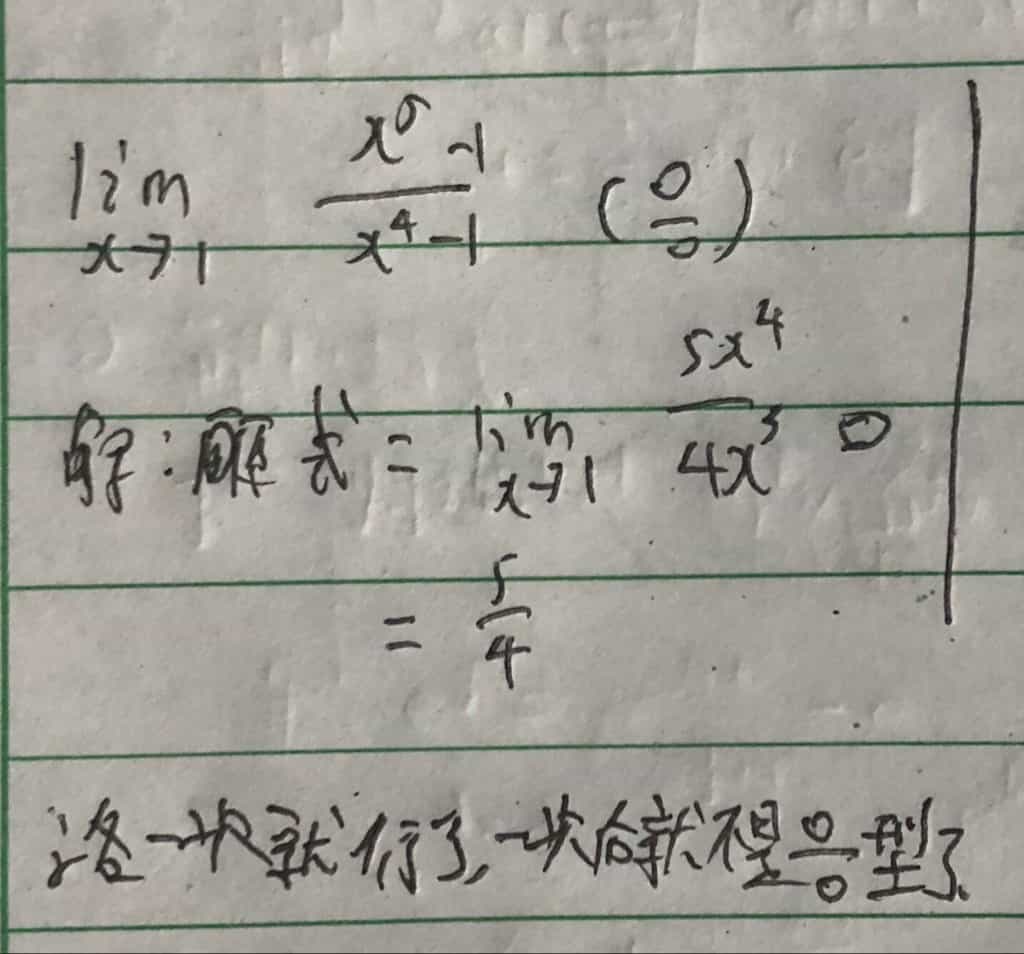 lim x→1 (x^5 -1)/(x^4 -1) (0/0)
解:原式 = lim x→1 5x^4/4x^3
= 5/4
洛一次就行了,一次后就不是 0/0 型了